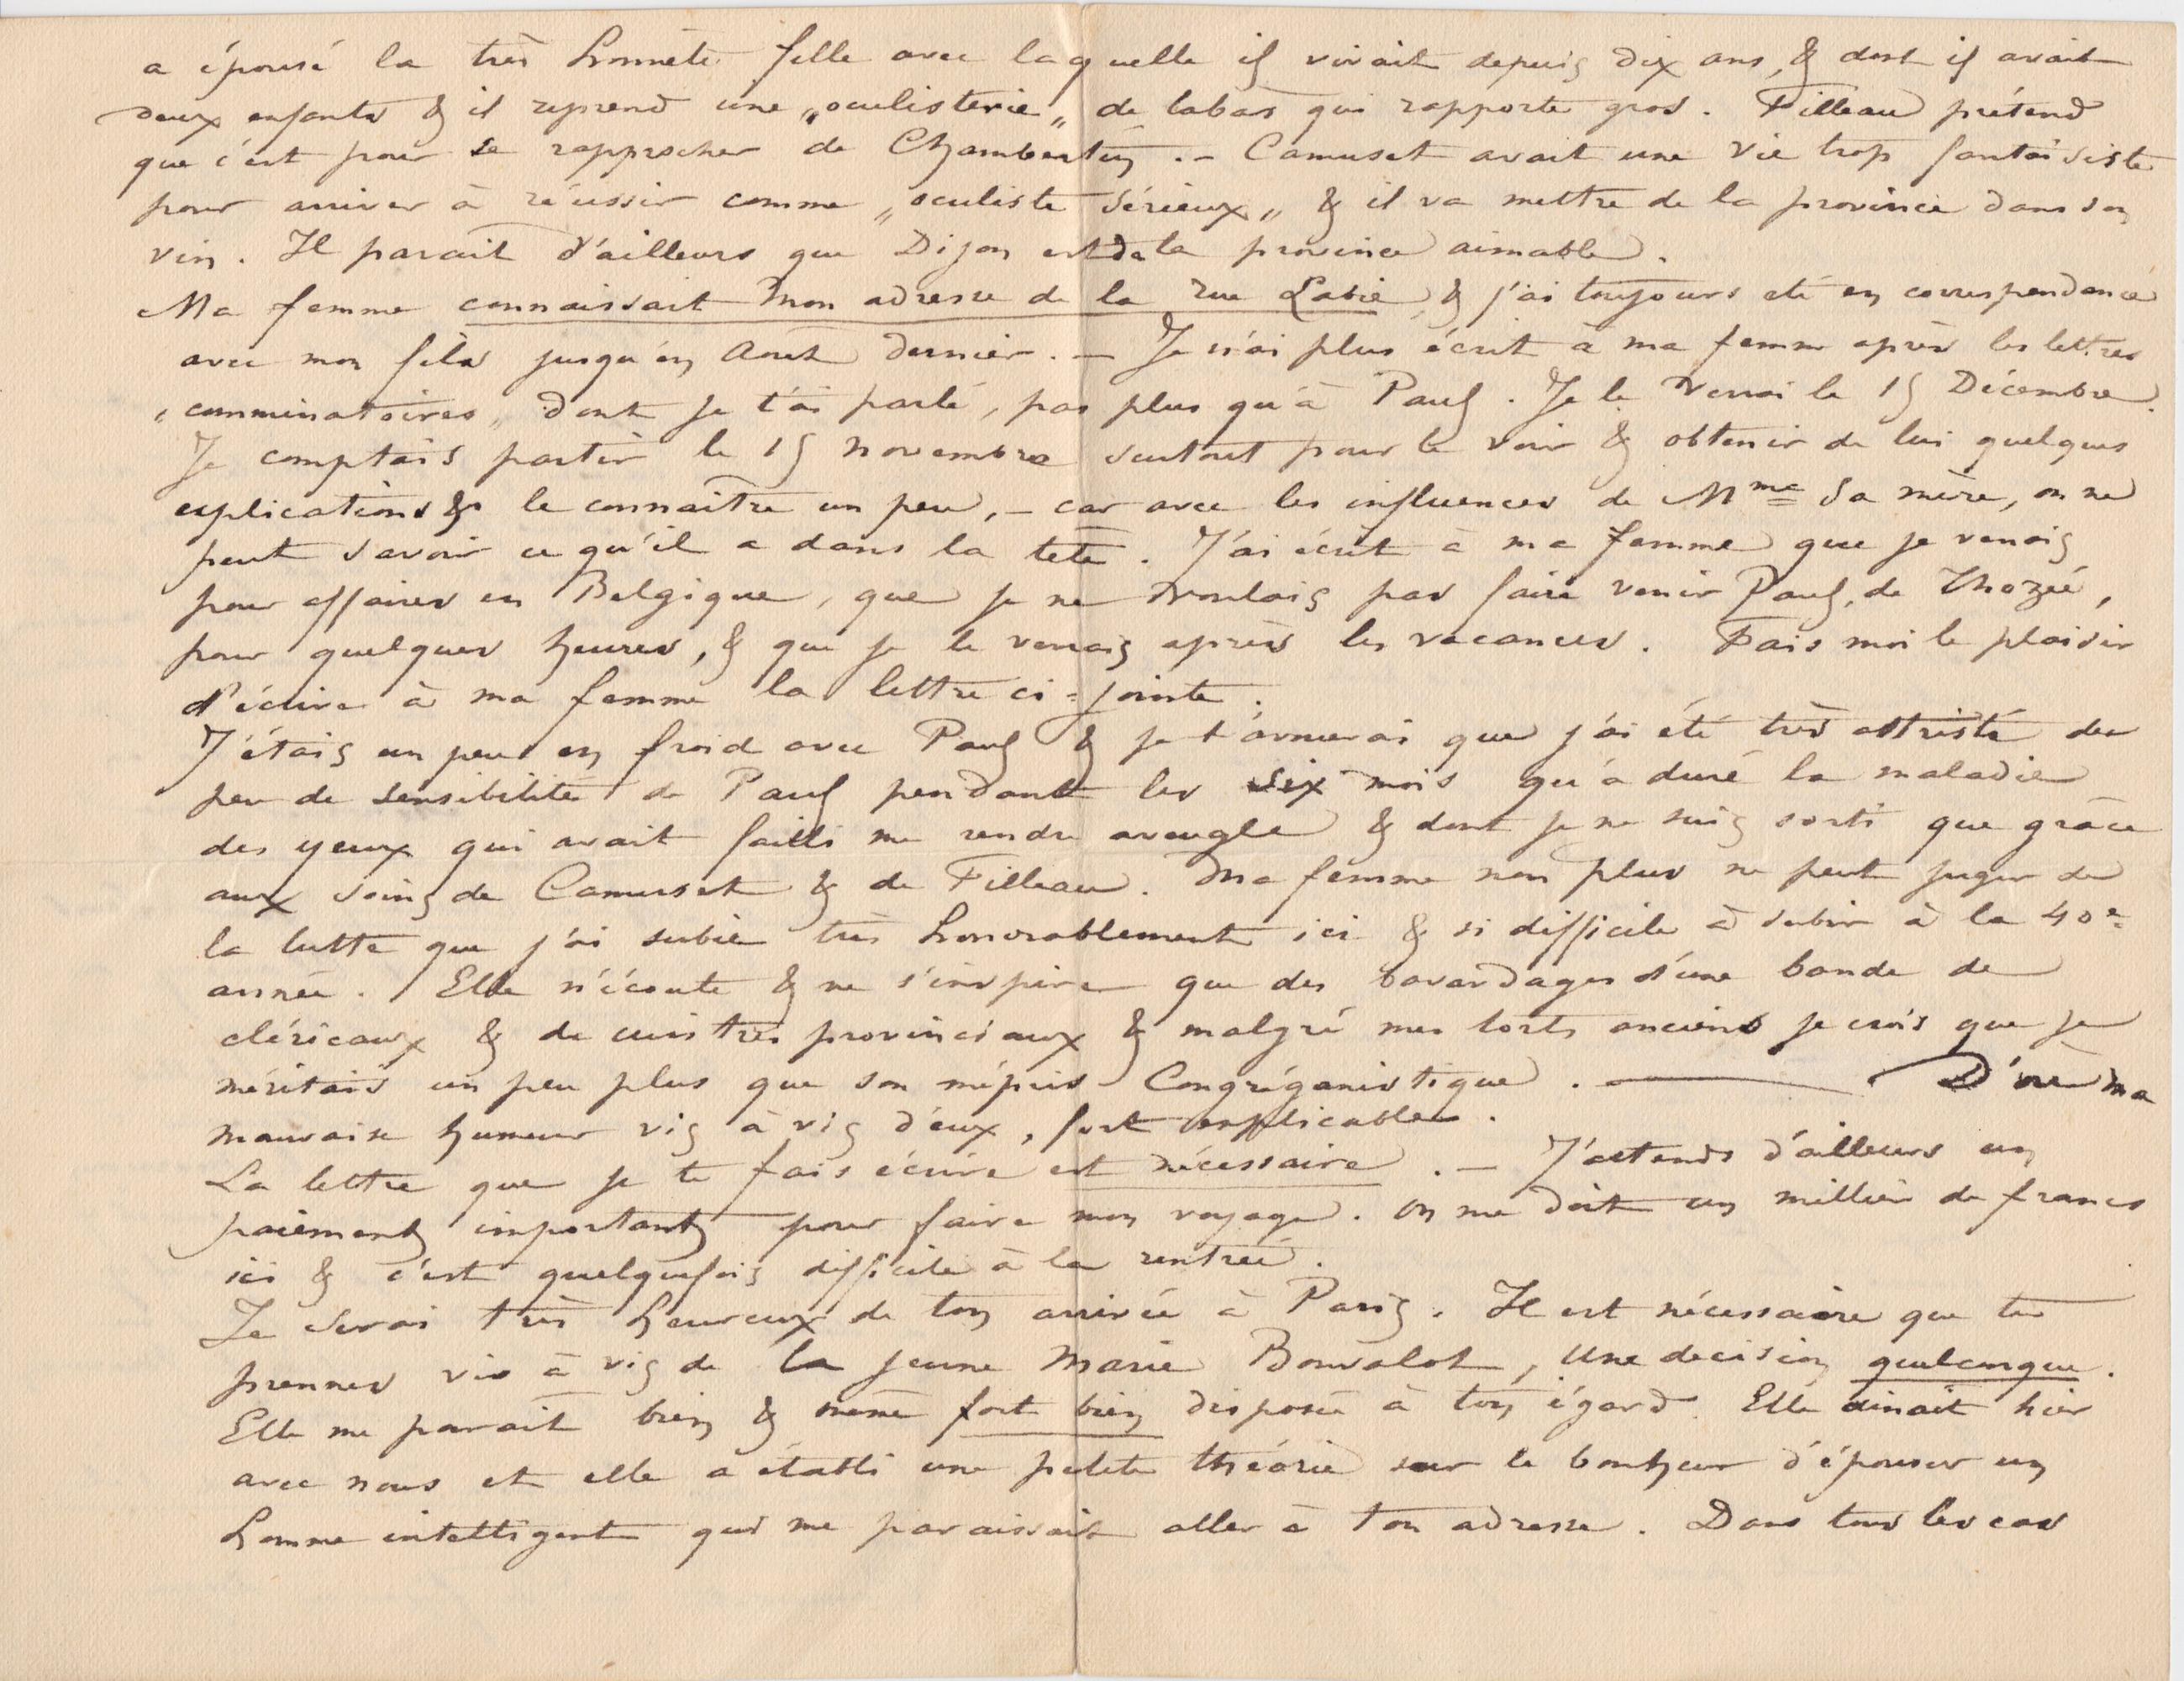 a épousé la très honnête fille avec laquelle il vivait depuis dix ans, & dont il avait
deux enfants & il reprend une „oculisterie„ de labas qui rapporte gros. Filleau prétend
que c'est pour se rapprocher de Chambertin. – Camuset avait une vie trop fantaisiste
pour arriver à réussir comme „oculiste sérieux„ & il va mettre de la province dans son
vin. Il parait d'ailleurs que Dijon est de la province aimable.
Ma femme connaissait mon adresse de la rue Labie, & j'ai toujours été en correspondance
avec mon fils jusqu'en Aout dernier. – Je n'ai plus écrit à ma femme après les lettres
„comminatoires„ dont je t'ai parlé, pas plus qu'à Paul. Je le verrai le 15 Décembre.
Je comptais partir le 15 novembre surtout pour le voir & obtenir de lui quelques
explications & le connaître un peu, – car avec les influences de Mme sa mère, on ne
peut savoir ce qu'il a dans la tête. J'ai écrit à ma femme que je venais
pour affaires en Belgique, que je ne voulais pas faire venir Paul, de Thozée,
pour quelques heures, & que je le verrais après les vacances. Fais moi le plaisir
d'écrire à ma femme la lettre ci-jointe.
J'étais un peu en froid avec Paul & je t'avouerai que j'ai été très attristé du
peu de sensibilité de Paul pendant les six mois qu'a duré la maladie
des yeux qui avait failli me rendre aveugle & dont je ne suis sorti que grâce
aux soins de Camuset & de Filleau. Ma femme non plus ne peut juger de
la lutte que j'ai subie très honorablement ici & si difficile à subir à la 40e
année. Elle n'écoute & ne s'inspire que des bavardages d'une bande de
cléricaux & de cuistres provinciaux & malgré mes torts anciens je crois que je
méritais un peu plus que son mépris Congréganistique. – D'où ma
mauvaise humeur vis à vis d'eux, fort explicable.
La lettre que je te fais écrire est nécessaire. – J'attends d'ailleurs un
paiement important pour faire mon voyage. On me doit un millier de francs
ici & c'est quelquefois difficile à la rentrée.
Je serai très heureux de ton arrivée à Paris. Il est nécessaire que tu
prennes vis à vis de la jeune Marie Bonvalot, une decision quelconque.
Elle me parait bien & même fort bien disposée à ton égard. Elle dinait hier
avec nous et elle a établi une petite théorie sur le bonheur d'épouser un
homme intelligent qui me paraissait aller à ton adresse. Dans tous les cas